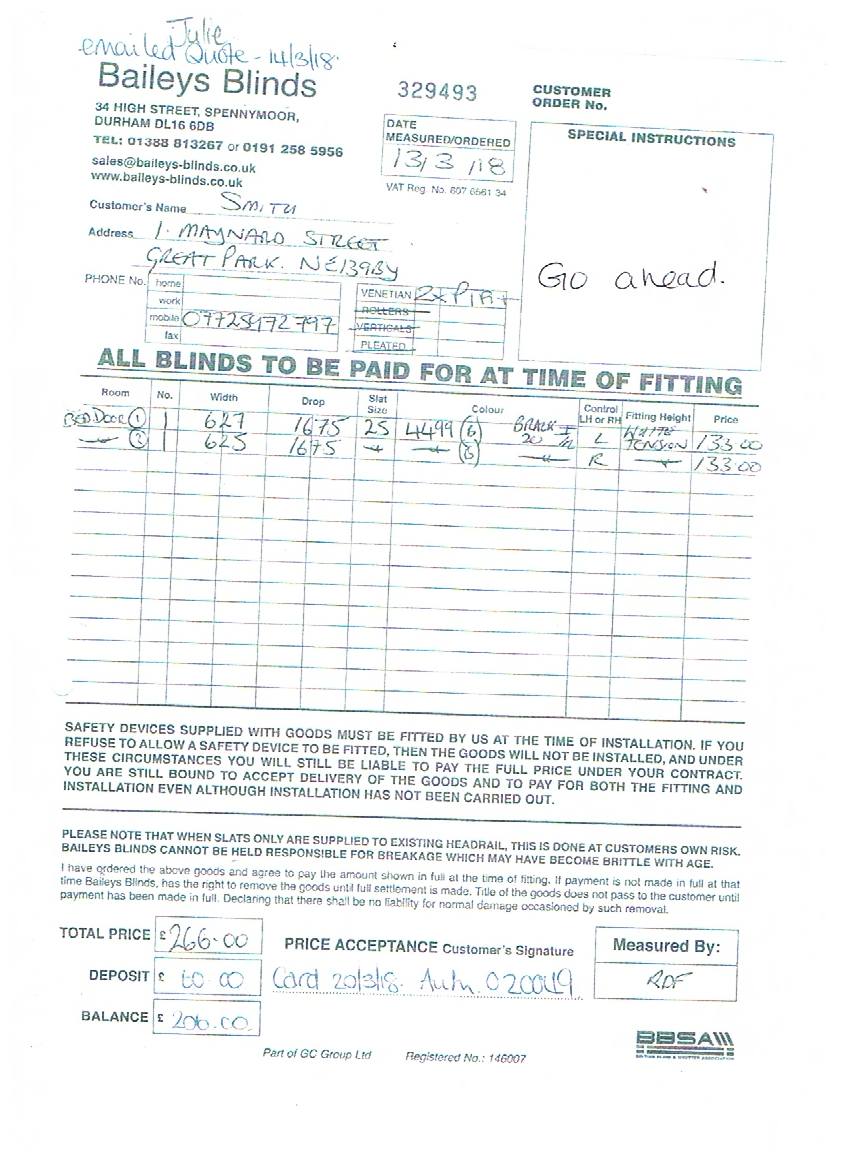 Julie
emailed Quote - 14/3/18.
Baileys Blinds
34 HIGH STREET, SPENNYMOOR,
DURHAM DL16 6DB
TEL: 01388 813267 or 0191 258 5956
sales@baileys-blinds.co.uk
www.baileys-blinds.co.uk
329493
DATE
MEASURED/ORDERED
13/3/18
VAT Reg. No. 607 6561 34
CUSTOMER
ORDER No.
SPECIAL INSTRUCTIONS
Go ahead.
Customer's Name SMITH
Address 1. MAYNARD STREET
GREAT PARK. NE139BY
PHONE No. home
work
mobile 07725972797
fax
VENETIAN 2x
ROLLERS
VERTICALS
PLEATED
ALL BLINDS TO BE PAID FOR AT TIME OF FITTING
Room No. Width Drop Slat Size Colour Control LH or RH Fitting Height Price
BED DOOR (1) 1 627 1675 25 4499 (6) 20 L WHITE TENSION 133.00
(2) 1 625 1675 R 133.00
SAFETY DEVICES SUPPLIED WITH GOODS MUST BE FITTED BY US AT THE TIME OF INSTALLATION. IF YOU
REFUSE TO ALLOW A SAFETY DEVICE TO BE FITTED, THEN THE GOODS WILL NOT BE INSTALLED, AND UNDER
THESE CIRCUMSTANCES YOU WILL STILL BE LIABLE TO PAY THE FULL PRICE UNDER YOUR CONTRACT.
YOU ARE STILL BOUND TO ACCEPT DELIVERY OF THE GOODS AND TO PAY FOR BOTH THE FITTING AND
INSTALLATION EVEN ALTHOUGH INSTALLATION HAS NOT BEEN CARRIED OUT.
PLEASE NOTE THAT WHEN SLATS ONLY ARE SUPPLIED TO EXISTING HEADRAIL, THIS IS DONE AT CUSTOMERS OWN RISK.
BAILEYS BLINDS CANNOT BE HELD RESPONSIBLE FOR BREAKAGE WHICH MAY HAVE BECOME BRITTLE WITH AGE.
I have ordered the above goods and agree to pay the amount shown in full at the time of fitting. If payment is not made in full at that
time Baileys Blinds, has the right to remove the goods until full settlement is made. Title of the goods does not pass to the customer until
payment has been made in full. Declaring that there shall be no liability for normal damage occasioned by such removal.
TOTAL PRICE £ 266.00
DEPOSIT £ 60.00
BALANCE £ 206.00
PRICE ACCEPTANCE Customer's Signature
Card 20/3/18. Auth. 020049
Measured By:
RDF
Part of GC Group Ltd Registered No.: 146007
BBSA
BRITISH BLIND & SHUTTER ASSOCIATION